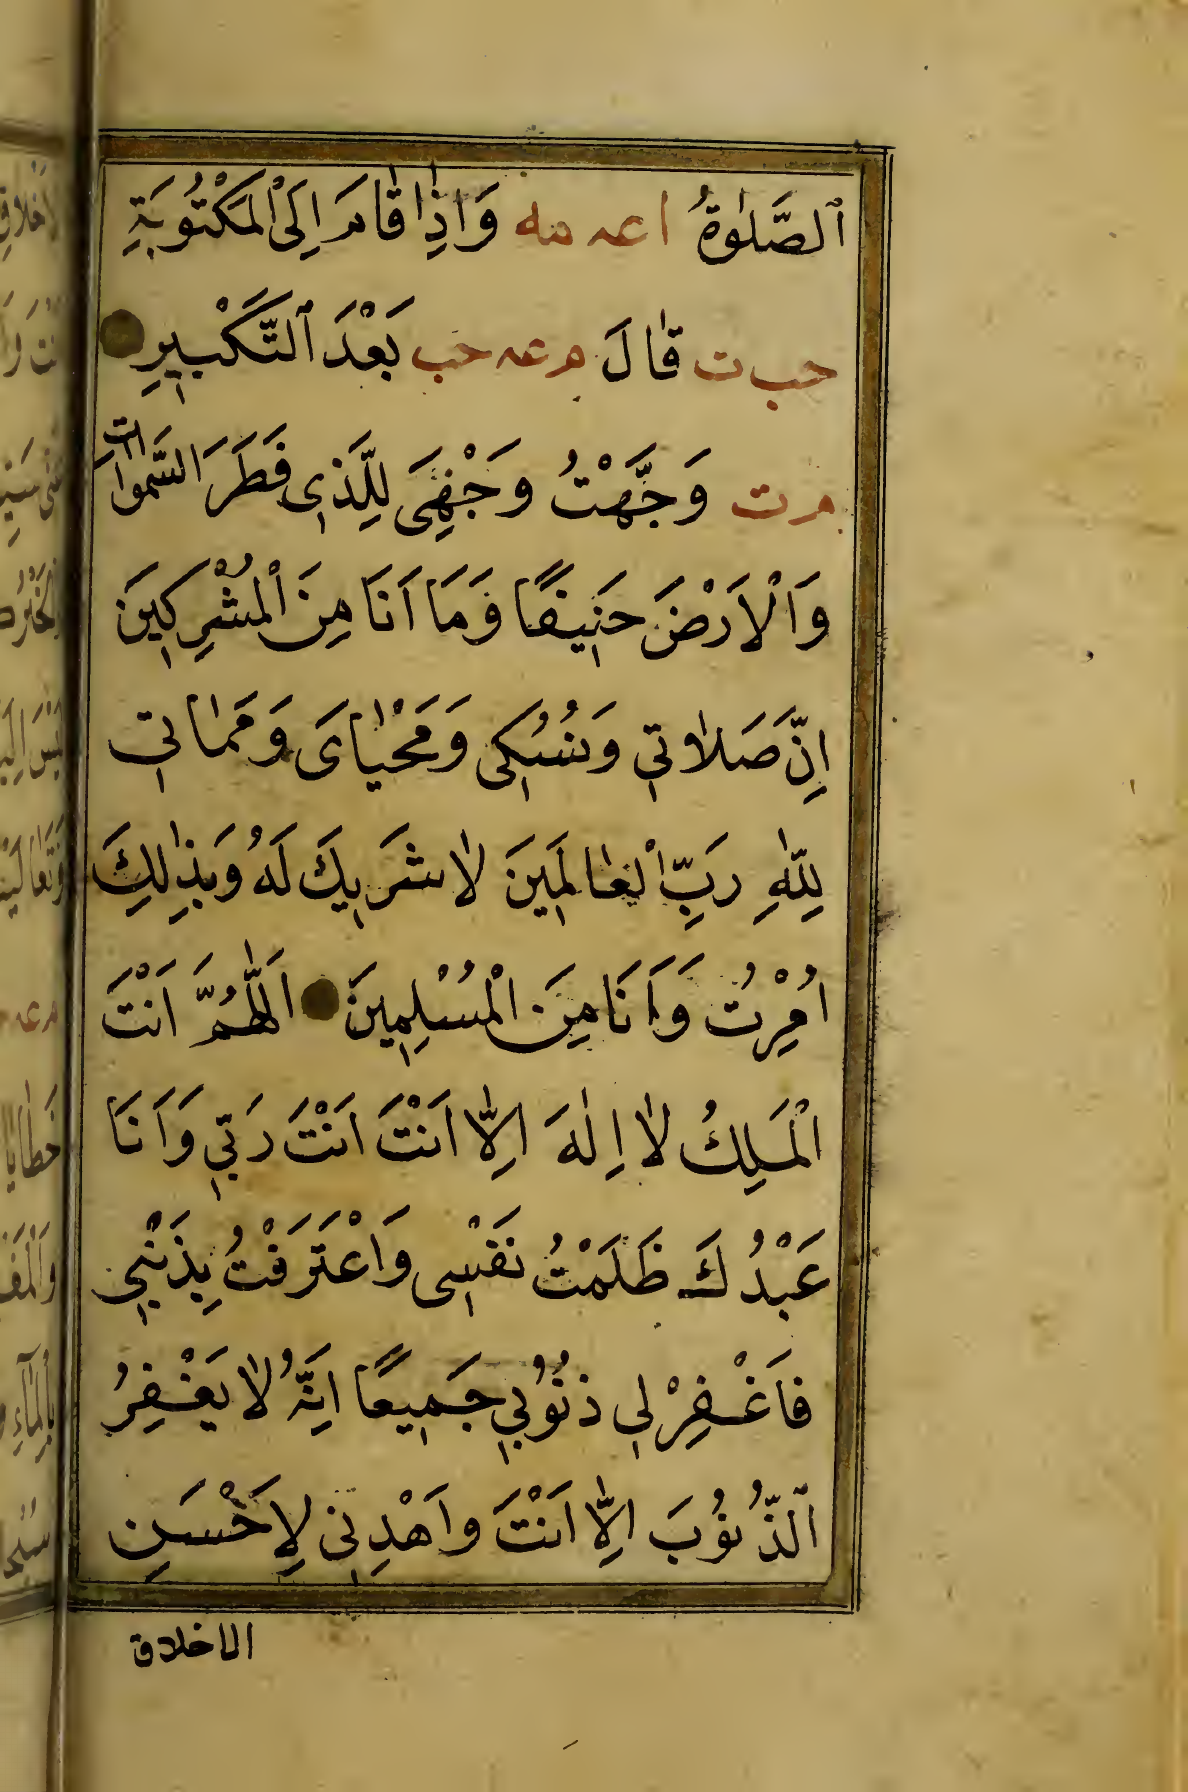 اَلصَّلٰوةُ ا عه مه وَاِذَا قَامَ اِلَى الْمَكْتُوبَةِ
حب ت قَالَ م عه حب بَعْدَ اَلتَّكْبِيرِ
م ت وَجَّهْتُ وَجْهِيَ لِلَّذِي فَطَرَ السَّمٰوَاتِ
وَالْاَرْضَ حَنِيفًا وَمَا اَنَا مِنَ الْمُشْرِكِينَ
اِنَّ صَلَاتِي وَنُسُكِي وَمَحْيَايَ وَمَمَاتِي
لِلّٰهِ رَبِّ الْعَالَمِينَ لَا شَرِيكَ لَهُ وَبِذٰلِكَ
اُمِرْتُ وَاَنَا مِنَ الْمُسْلِمِينَ اَللّٰهُمَّ اَنْتَ
الْمَلِكُ لَا اِلٰهَ اِلَّا اَنْتَ اَنْتَ رَبِّي وَاَنَا
عَبْدُكَ ظَلَمْتُ نَفْسِي وَاعْتَرَفْتُ بِذَنْبِي
فَاغْفِرْ لِي ذُنُوبِي جَمِيعًا اِنَّهُ لَا يَغْفِرُ
اَلذُّنُوبَ اِلَّا اَنْتَ وَاهْدِنِي لِاَحْسَنِ
الاخلاق